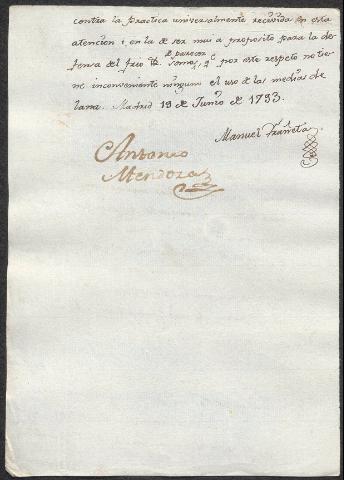 contra la practica universalmente recivida en esta
atencion i en la de ser mas a proposito para la de-
fensa del frio somos de parecer, q.e por este respeto no tie-
ne inconveniente ninguno el uso de las medias de
lana. Madrid 19 de Junio de 1793.
Manuel
Antonio
Mendoza